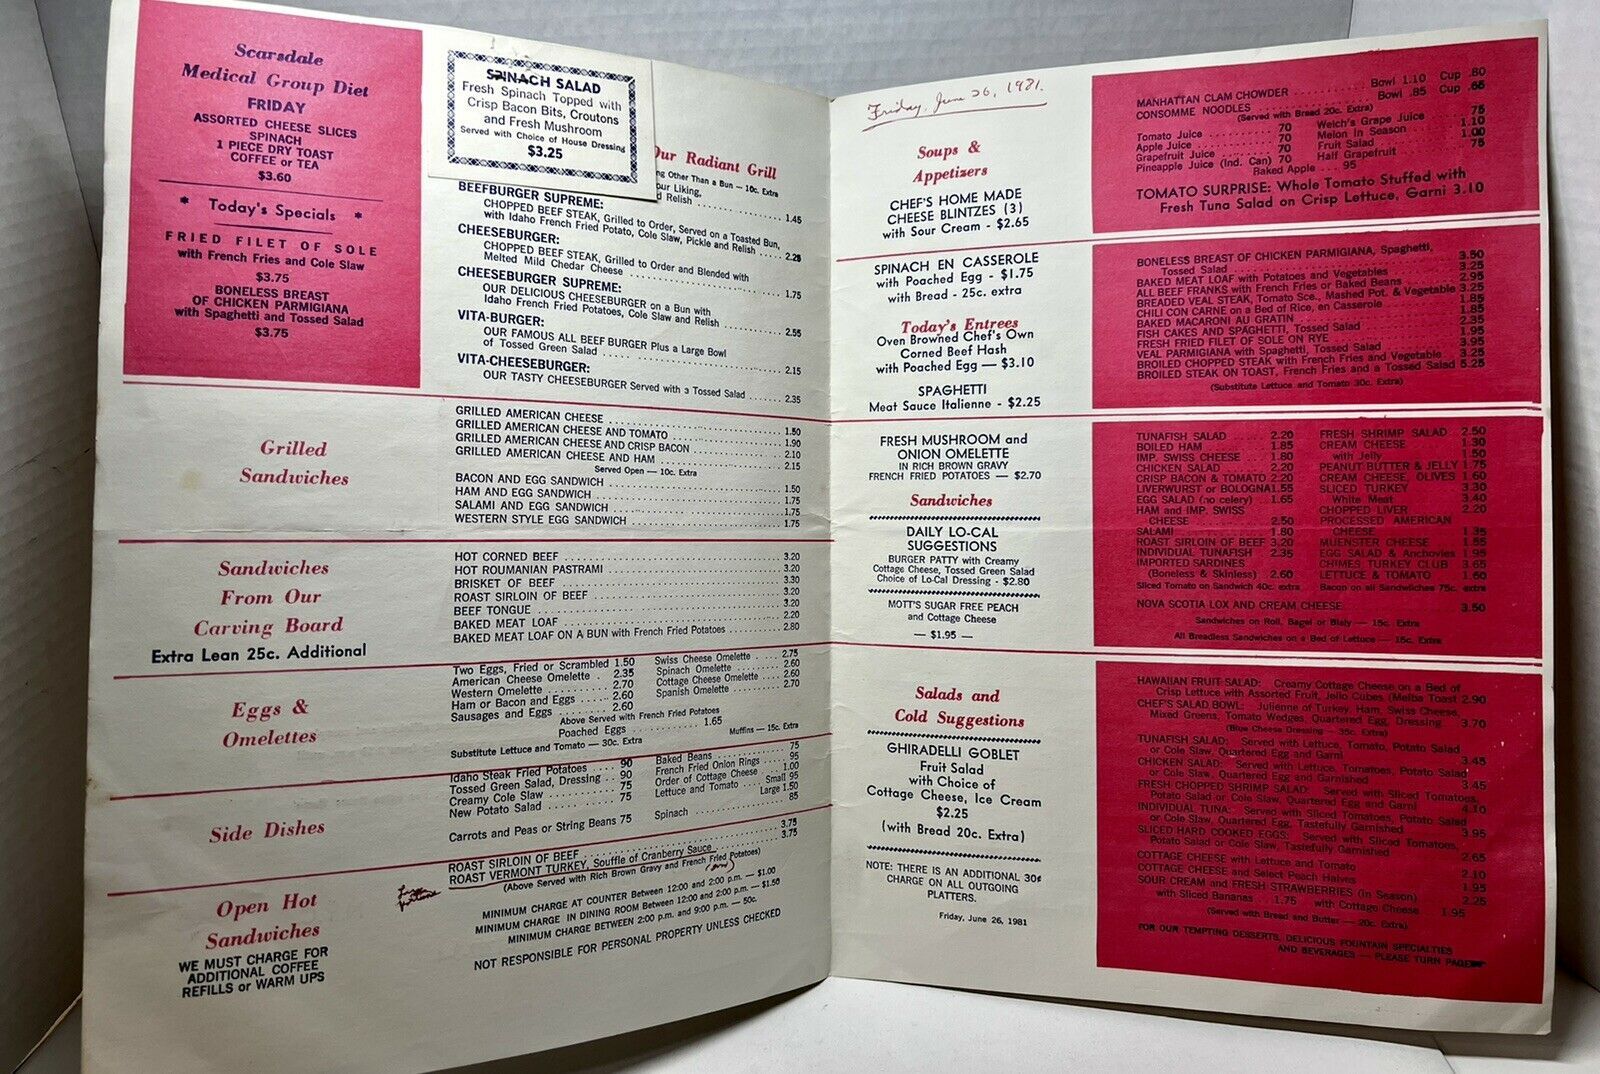 Scarsdale
Medical Group Diet
FRIDAY
ASSORTED CHEESE SLICES
SPINACH
1 PIECE DRY TOAST
COFFEE or TEA
$3.60
* Today's Specials *
FRIED FILET OF SOLE
with French Fries and Cole Slaw
$3.75
BONELESS BREAST
OF CHICKEN PARMIGIANA
with Spaghetti and Tossed Salad
$3.75
SPINACH SALAD
Fresh Spinach Topped with
Crisp Bacon Bits, Croutons
and Fresh Mushroom
Served with Choice of House Dressing
$3.25
Our Radiant Grill
Other Than a Bun — 10c. Extra
our Liking,
d Relish ........ 1.45
BEEFBURGER SUPREME:
CHOPPED BEEF STEAK, Grilled to Order, Served on a Toasted Bun,
with Idaho French Fried Potato, Cole Slaw, Pickle and Relish .... 2.25
CHEESEBURGER:
CHOPPED BEEF STEAK, Grilled to Order and Blended with
Melted Mild Chedar Cheese ........ 1.75
CHEESEBURGER SUPREME:
OUR DELICIOUS CHEESEBURGER on a Bun with
Idaho French Fried Potatoes, Cole Slaw and Relish ........ 2.55
VITA-BURGER:
OUR FAMOUS ALL BEEF BURGER Plus a Large Bowl
of Tossed Green Salad ........ 2.15
VITA-CHEESEBURGER:
OUR TASTY CHEESEBURGER Served with a Tossed Salad ....... 2.35
Grilled
Sandwiches
GRILLED AMERICAN CHEESE ........ 1.50
GRILLED AMERICAN CHEESE AND TOMATO ........ 1.90
GRILLED AMERICAN CHEESE AND CRISP BACON ........ 2.10
GRILLED AMERICAN CHEESE AND HAM ........ 2.15
Served Open — 10c. Extra
BACON AND EGG SANDWICH ........ 1.50
HAM AND EGG SANDWICH ........ 1.75
SALAMI AND EGG SANDWICH ........ 1.75
WESTERN STYLE EGG SANDWICH ........ 1.75
Sandwiches
From Our
Carving Board
Extra Lean 25c. Additional
HOT CORNED BEEF ........ 3.20
HOT ROUMANIAN PASTRAMI ........ 3.20
BRISKET OF BEEF ........ 3.30
ROAST SIRLOIN OF BEEF ........ 3.20
BEEF TONGUE ........ 3.20
BAKED MEAT LOAF ........ 2.20
BAKED MEAT LOAF ON A BUN with French Fried Potatoes ........ 2.80
Eggs &
Omelettes
Two Eggs, Fried or Scrambled 1.50
American Cheese Omelette . 2.35
Western Omelette ........ 2.70
Ham or Bacon and Eggs .... 2.60
Sausages and Eggs ........ 2.60
Swiss Cheese Omelette .... 2.75
Spinach Omelette ........ 2.60
Cottage Cheese Omelette ... 2.60
Spanish Omelette ........ 2.70
Above Served with French Fried Potatoes
Poached Eggs ........ 1.65
Muffins — 15c. Extra
Substitute Lettuce and Tomato — 30c. Extra
Side Dishes
Idaho Steak Fried Potatoes ... 90
Tossed Green Salad, Dressing .. 90
Creamy Cole Slaw ........ 75
New Potato Salad ........ 75
Carrots and Peas or String Beans 75
Baked Beans ........ 75
French Fried Onion Rings .... 95
Order of Cottage Cheese .... 1.00
Lettuce and Tomato .... Small 95
Large 1.50
Spinach ........ 85
Open Hot
Sandwiches
WE MUST CHARGE FOR
ADDITIONAL COFFEE
REFILLS or WARM UPS
ROAST SIRLOIN OF BEEF ........ 3.75
ROAST VERMONT TURKEY, Souffle of Cranberry Sauce ........ 3.75
(Above Served with Rich Brown Gravy and French Fried Potatoes)
MINIMUM CHARGE AT COUNTER Between 12:00 and 2:00 p.m. — $1.00
MINIMUM CHARGE IN DINING ROOM Between 12:00 and 2:00 p.m. — $1.50
MINIMUM CHARGE BETWEEN 2:00 p.m. and 9:00 p.m. — 50c.
NOT RESPONSIBLE FOR PERSONAL PROPERTY UNLESS CHECKED
Friday, June 26, 1981.
Soups &
Appetizers
CHEF'S HOME MADE
CHEESE BLINTZES (3)
with Sour Cream - $2.65
MANHATTAN CLAM CHOWDER ........ Bowl 1.10 Cup .80
CONSOMME NOODLES ........ Bowl .85 Cup .65
(Served with Bread 20c. Extra)
Tomato Juice ........ 70
Apple Juice ........ 70
Grapefruit Juice ........ 70
Pineapple Juice (Ind. Can) 70
Welch's Grape Juice .... 75
Melon In Season ........ 1.10
Fruit Salad ........ 1.00
Half Grapefruit ........ 75
Baked Apple ... 95
TOMATO SURPRISE: Whole Tomato Stuffed with
Fresh Tuna Salad on Crisp Lettuce, Garni 3.10
SPINACH EN CASSEROLE
with Poached Egg - $1.75
with Bread - 25c. extra
Today's Entrees
Oven Browned Chef's Own
Corned Beef Hash
with Poached Egg — $3.10
SPAGHETTI
Meat Sauce Italienne - $2.25
BONELESS BREAST OF CHICKEN PARMIGIANA, Spaghetti,
Tossed Salad ........ 3.50
BAKED MEAT LOAF with Potatoes and Vegetables ........ 3.25
ALL BEEF FRANKS with French Fries or Baked Beans ........ 2.95
BREADED VEAL STEAK, Tomato Sce., Mashed Pot. & Vegetable 3.25
CHILI CON CARNE on a Bed of Rice, en Casserole ........ 1.85
BAKED MACARONI AU GRATIN ........ 1.85
FISH CAKES AND SPAGHETTI, Tossed Salad ........ 2.35
FRESH FRIED FILET OF SOLE ON RYE ........ 1.95
VEAL PARMIGIANA with Spaghetti, Tossed Salad ........ 3.95
BROILED CHOPPED STEAK with French Fries and Vegetable 3.25
BROILED STEAK ON TOAST, French Fries and a Tossed Salad 5.25
(Substitute Lettuce and Tomato 30c. Extra)
FRESH MUSHROOM and
ONION OMELETTE
IN RICH BROWN GRAVY
FRENCH FRIED POTATOES — $2.70
Sandwiches
DAILY LO-CAL
SUGGESTIONS
BURGER PATTY with Creamy
Cottage Cheese, Tossed Green Salad
Choice of Lo-Cal Dressing - $2.80
MOTT'S SUGAR FREE PEACH
and Cottage Cheese
— $1.95 —
TUNAFISH SALAD ........ 2.20
BOILED HAM ........ 1.85
IMP. SWISS CHEESE .... 1.80
CHICKEN SALAD ........ 2.20
CRISP BACON & TOMATO 2.20
LIVERWURST or BOLOGNA 1.55
EGG SALAD (no celery) .. 1.65
HAM and IMP. SWISS
CHEESE ........ 2.50
SALAMI ........ 1.80
ROAST SIRLOIN OF BEEF 3.20
INDIVIDUAL TUNAFISH .. 2.35
IMPORTED SARDINES
(Boneless & Skinless) .. 2.60
Sliced Tomato on Sandwich 40c. extra
FRESH SHRIMP SALAD 2.50
CREAM CHEESE ........ 1.30
with Jelly ........ 1.50
PEANUT BUTTER & JELLY 1.75
CREAM CHEESE, OLIVES 1.60
SLICED TURKEY ........ 3.30
White Meat ........ 3.40
CHOPPED LIVER ........ 2.20
PROCESSED AMERICAN
CHEESE ........ 1.35
MUENSTER CHEESE ..... 1.55
EGG SALAD & Anchovies 1.95
CHIMES TURKEY CLUB . 3.65
LETTUCE & TOMATO .... 1.60
Bacon on all Sandwiches 75c. extra
NOVA SCOTIA LOX AND CREAM CHEESE ........ 3.50
Sandwiches on Roll, Bagel or Bialy — 15c. Extra
All Breadless Sandwiches on a Bed of Lettuce — 15c. Extra
Salads and
Cold Suggestions
GHIRADELLI GOBLET
Fruit Salad
with Choice of
Cottage Cheese, Ice Cream
$2.25
(with Bread 20c. Extra)
NOTE: THERE IS AN ADDITIONAL 30¢
CHARGE ON ALL OUTGOING
PLATTERS.
Friday, June 26, 1981
HAWAIIAN FRUIT SALAD: Creamy Cottage Cheese on a Bed of
Crisp Lettuce with Assorted Fruit, Jello Cubes (Melba Toast 2.90
CHEF'S SALAD BOWL: Julienne of Turkey, Ham, Swiss Cheese,
Mixed Greens, Tomato Wedges, Quartered Egg, Dressing .... 3.70
(Blue Cheese Dressing — 35c. Extra)
TUNAFISH SALAD: Served with Lettuce, Tomato, Potato Salad
or Cole Slaw, Quartered Egg and Garni ........ 3.45
CHICKEN SALAD: Served with Lettuce, Tomatoes, Potato Salad
or Cole Slaw, Quartered Egg and Garnished ........ 3.45
FRESH CHOPPED SHRIMP SALAD: Served with Sliced Tomatoes,
Potato Salad or Cole Slaw, Quartered Egg and Garni ........ 4.10
INDIVIDUAL TUNA: Served with Sliced Tomatoes, Potato Salad
or Cole Slaw, Quartered Egg, Tastefully Garnished ........ 3.95
SLICED HARD COOKED EGGS: Served with Sliced Tomatoes,
Potato Salad or Cole Slaw, Tastefully Garnished ........ 2.65
COTTAGE CHEESE with Lettuce and Tomato ........ 2.10
COTTAGE CHEESE and Select Peach Halves ........ 1.95
SOUR CREAM and FRESH STRAWBERRIES (In Season) ........ 2.25
with Sliced Bananas .... 1.75 with Cottage Cheese .. 1.95
(Served with Bread and Butter — 20c. Extra)
FOR OUR TEMPTING DESSERTS, DELICIOUS FOUNTAIN SPECIALTIES
AND BEVERAGES — PLEASE TURN PAGE